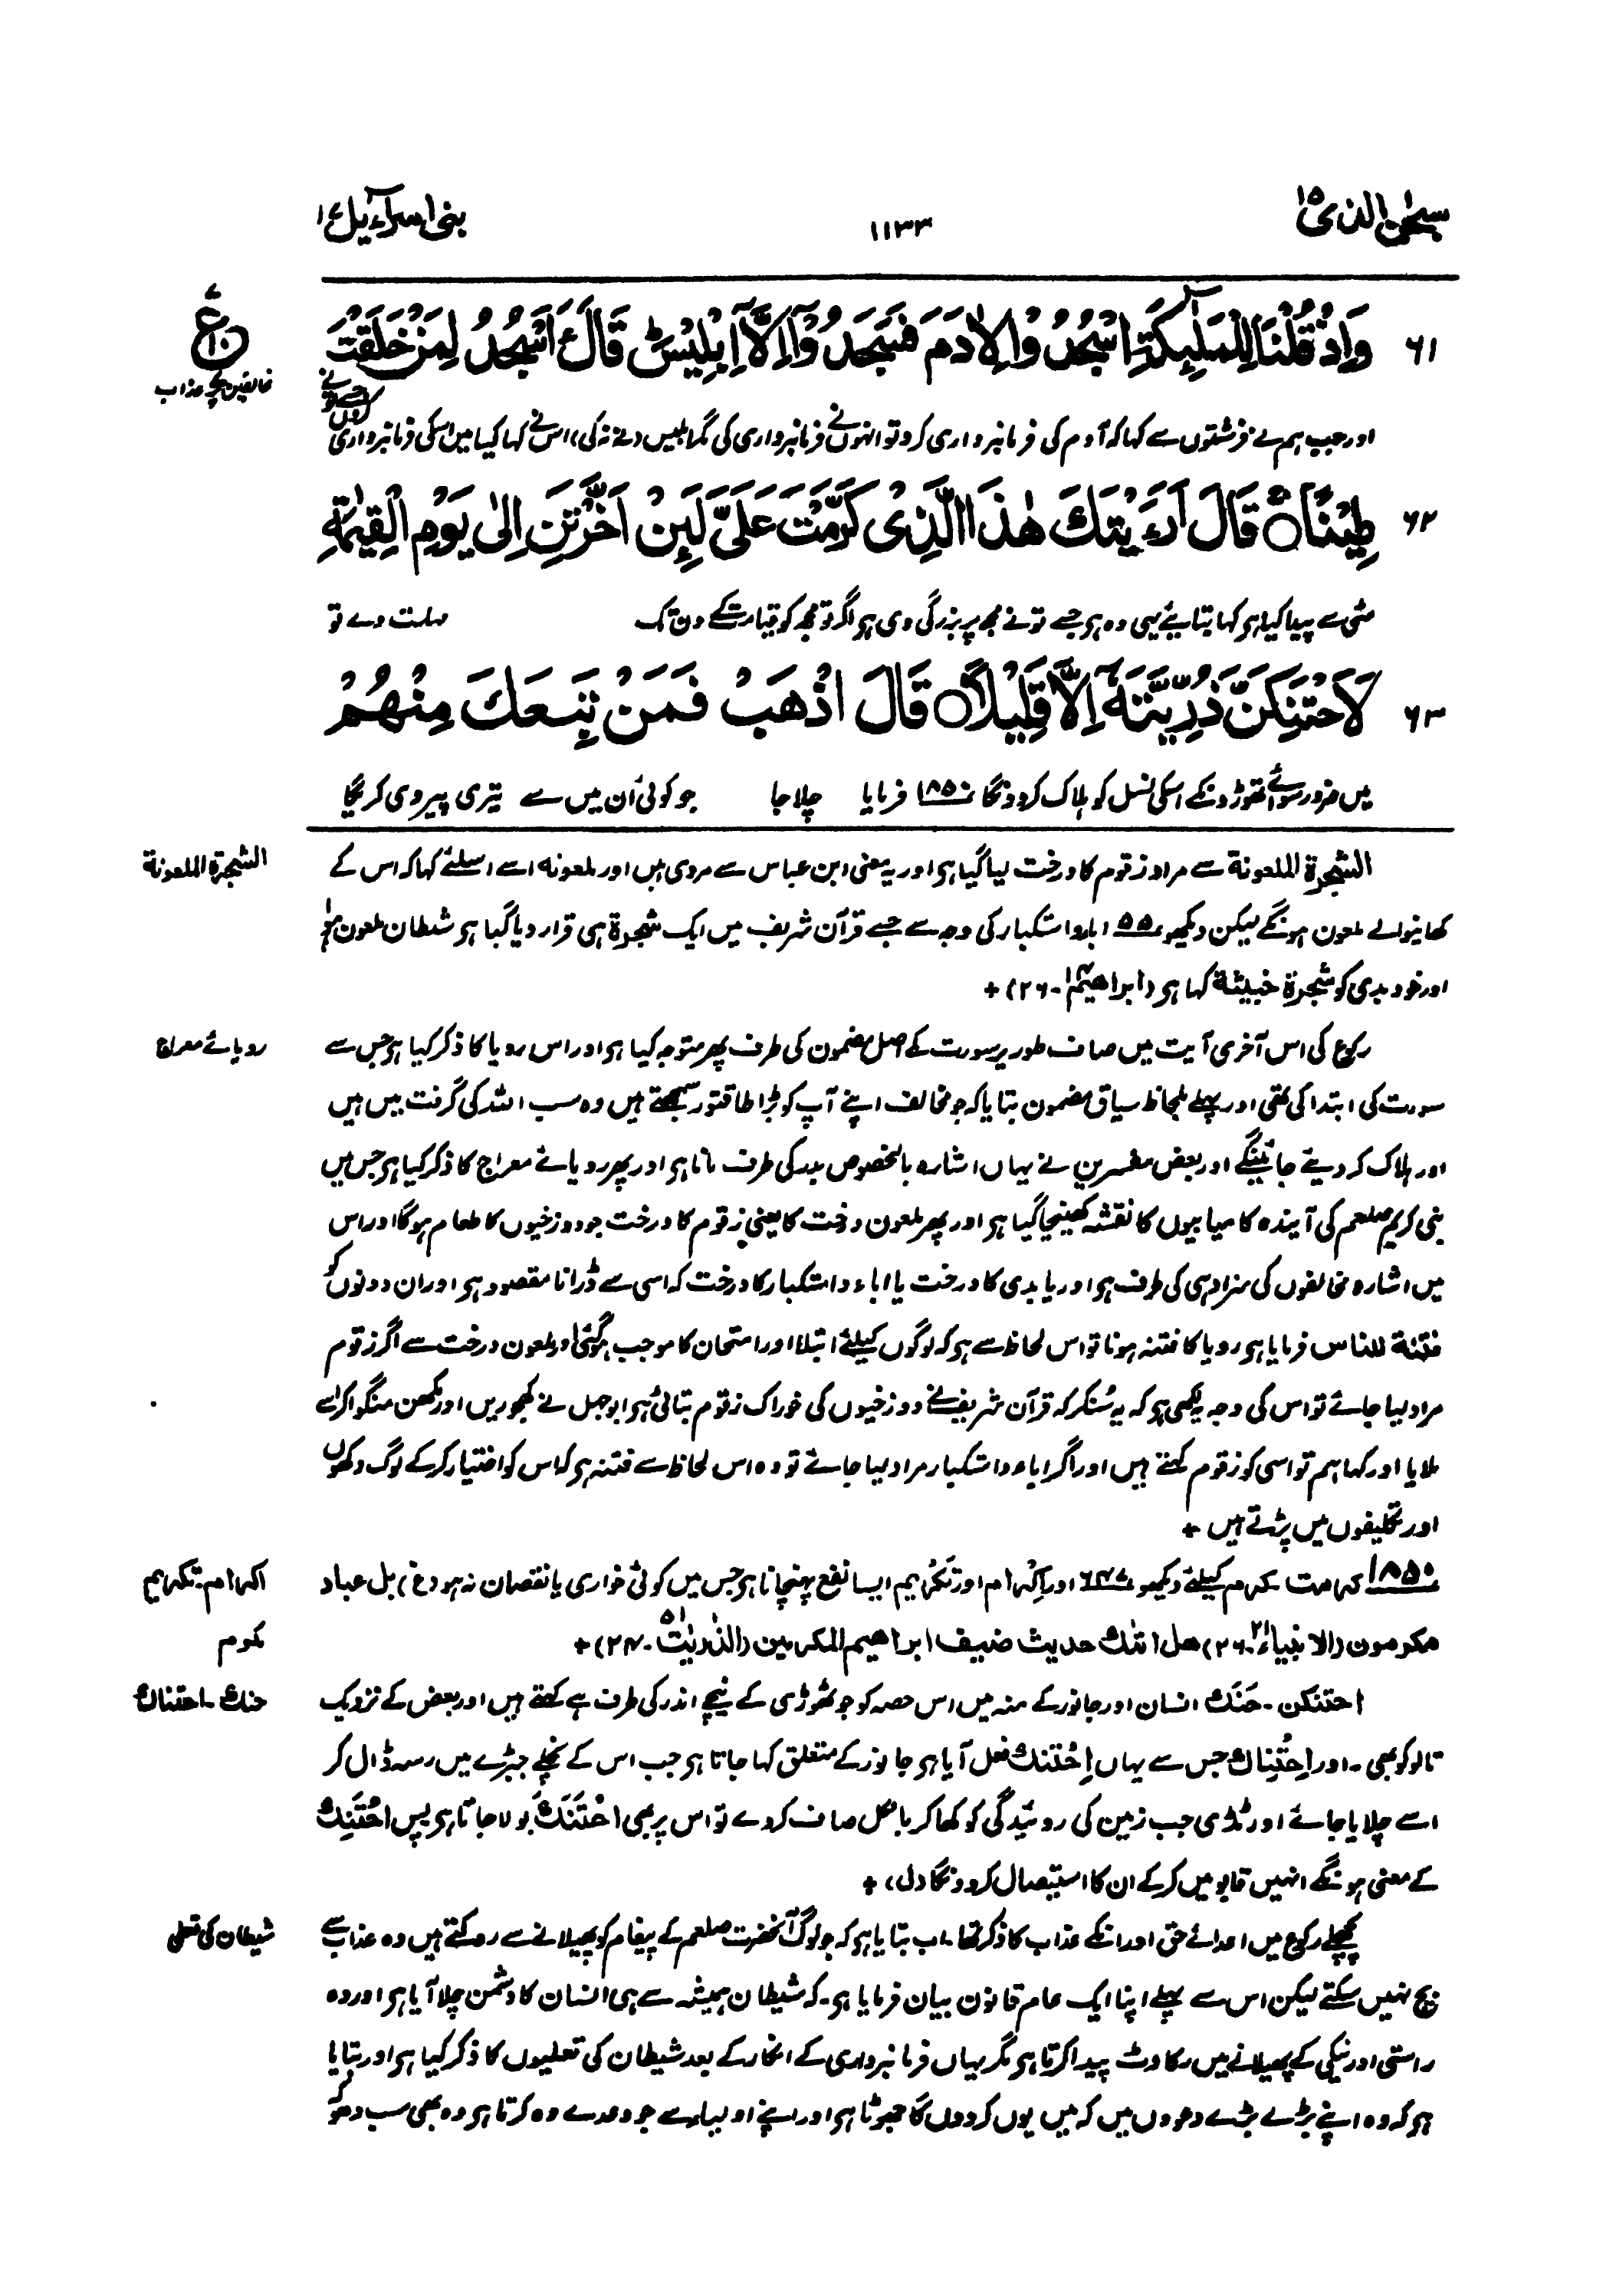 سبحٰن الذی ۱۵
۱۱۳۳
بنی اسرآءیل ۱۷
۶۱ وَاِذْ قُلْنَا لِلْمَلٰٓئِكَةِ اسْجُدُوْا لِاٰدَمَ فَسَجَدُوْٓا اِلَّآ اِبْلِیْسَ ؕ قَالَ ءَاَسْجُدُ لِمَنْ خَلَقْتَ
ع
مخالفین پر عذاب
اور جب ہم نے فرشتوں سے کہا کہ آدم کی فرمانبرداری کرو تو انہوں نے فرمانبرداری کی مگر ابلیس (نے نہ کی) اس نے کہا کیا میں اسکی فرمانبرداری کروں جسے تو نے
۶۲ طِیْنًا ۚ قَالَ اَرَءَیْتَكَ هٰذَا الَّذِیْ كَرَّمْتَ عَلَیَّ لَئِنْ اَخَّرْتَنِ اِلٰی یَوْمِ الْقِیٰمَةِ
مٹی سے پیدا کیا ہو کہا بتایئے یہی وہ ہے جسے تو نے مجھ پر بزرگی دی ہو اگر تو مجھ کو قیامت کے دن تک مہلت دے تو
۶۳ لَاَحْتَنِكَنَّ ذُرِّیَّتَهٗٓ اِلَّا قَلِیْلًا قَالَ اذْهَبْ فَمَنْ تَبِعَكَ مِنْهُمْ
میں ضرور سوائے تھوڑوں کے اسکی نسل کو ہلاک کر دونگا ۱۸۵۰ فرمایا چلا جا جو کوئی اُن میں سے تیری پیروی کریگا
الشجرة الملعونة
الشجرة الملعونة سے مراد زقوم کا درخت لیا گیا ہو اور یہ معنی ابن عباس سے مروی ہیں اور ملعونہ اسے اسلئے کہا کہ اس کے
کھانیوالے ملعون ہونگے لیکن دیکھو ۵۵ اباء و استکبار کی وجہ سے جسے قرآن شریف میں ایک شجرة ہی قرار دیا گیا ہو شیطان ملعون ہوا
اور خود بدی کو شجرة خبیثة کہا ہو (ابراھیم ۱۴-۲۶) +
رویائے معراج
رکوع کی اس آخری آیت میں صاف طور پر سورت کے اصل مضمون کی طرف پھر متوجہ کیا ہو اور اس رویا کا ذکر کیا ہو جس سے
سورت کی ابتدا کی تھی اور پہلے بلحاظ سیاق مضمون بتایا کہ جو مخالف اپنے آپ کو بڑا طاقتور سمجھتے ہیں وہ سب اللہ کی گرفت میں ہیں
اور ہلاک کر دیئے جائینگے اور بعض مفسرین نے یہاں اشارہ بالخصوص بدر کی طرف مانا ہو اور پھر رویائے معراج کا ذکر کیا ہو جس میں
نبی کریم صلعم کی آیندہ کامیابیوں کا نقشہ کھینچا گیا ہو اور پھر ملعون درخت کا یعنی زقوم کا درخت جو دوزخیوں کا طعام ہوگا اور اس
میں اشارہ مخالفوں کی سزا دہی کی طرف ہو اور یا بدی کا درخت یا اباء و استکبار کا درخت کہ اسی سے ڈرانا مقصود ہو اور ان دونوں کو
فتنة للناس فرمایا ہو رویا کا فتنہ ہونا تو اس لحاظ سے ہو کہ لوگوں کیلئے ابتلا اور امتحان کا موجب ہوگئی اور ملعون درخت سے اگر زقوم
مراد لیا جائے تو اس کی وجہ یہ لکھی ہو کہ یہ سُنکر کہ قرآن شریف نے دوزخیوں کی خوراک زقوم بتائی ہو ابوجہل نے کھجوریں اور مکھن منگوا کر اسے
ملایا اور کہا ہم تو اسی کو زقوم کہتے ہیں اور اگر اباء و استکبار مراد لیا جائے تو وہ اس لحاظ سے فتنہ ہو کہ اس کو اختیار کر کے لوگ دکھوں
اور تکلیفوں میں پڑتے ہیں +
اکرام ۔ تکریم
۱۸۵۰ کرمت ۔ کرم کیلئے دیکھو ۶۴۷ اور اِکْرام اور تَکْرِیم ایسا نفع پہنچانا ہو جس میں کوئی خواری یا نقصان نہ ہو (غ) بل عباد
مکرم
مکرمون (الانبیاء ۲۱-۲۶) ھل اتٰک حدیث ضیف ابراھیم المکرمین (الذٰریٰت ۵۱-۲۴) +
حنك ۔ احتناك
احتنکن ۔ حَنَك انسان اور جانور کے منہ میں اس حصہ کو جو ٹھوڑی کے نیچے اندر کی طرف ہے کہتے ہیں اور بعض کے نزدیک
تالو کو بھی ۔ اور اِحْتِناك جس سے یہاں اِحْتَنك فعل آیا ہو جانور کے متعلق کہا جاتا ہو جب اس کے نچلے جبڑے میں رسہ ڈال کر
اسے چلایا جائے اور ٹڈی جب زمین کی روئیدگی کو کھا کر بالکل صاف کر دے تو اس پر بھی احْتَنَكَ بولا جاتا ہو پس احْتَنِك
کے معنی ہونگے انہیں قابو میں کر کے ان کا استیصال کر دونگا (ل) +
شیطان کی تعلی
پچھلے رکوع میں اعدائے حق اور انکے عذاب کا ذکر تھا ۔ اب بتایا ہو کہ جو لوگ آنحضرت صلعم کے پیغام کو پھیلانے سے روکتے ہیں وہ عذاب سے
بچ نہیں سکتے لیکن اس سے پہلے اپنا ایک عام قانون بیان فرمایا ہو ۔ کہ شیطان ہمیشہ سے ہی انسان کا دشمن چلا آیا ہو اور وہ
راستی اور نیکی کے پھیلانے میں رکاوٹ پیدا کرتا ہو مگر یہاں فرمانبرداری کے انکار کے بعد شیطان کی تعلیوں کا ذکر کیا ہو اور بتایا
ہو کہ وہ اپنے بڑے بڑے دعووں میں کہ میں یوں کردوں گا جھوٹا ہو اور اپنے اولیاء سے جو وعدے وہ کرتا ہو وہ بھی سب دھوکہ